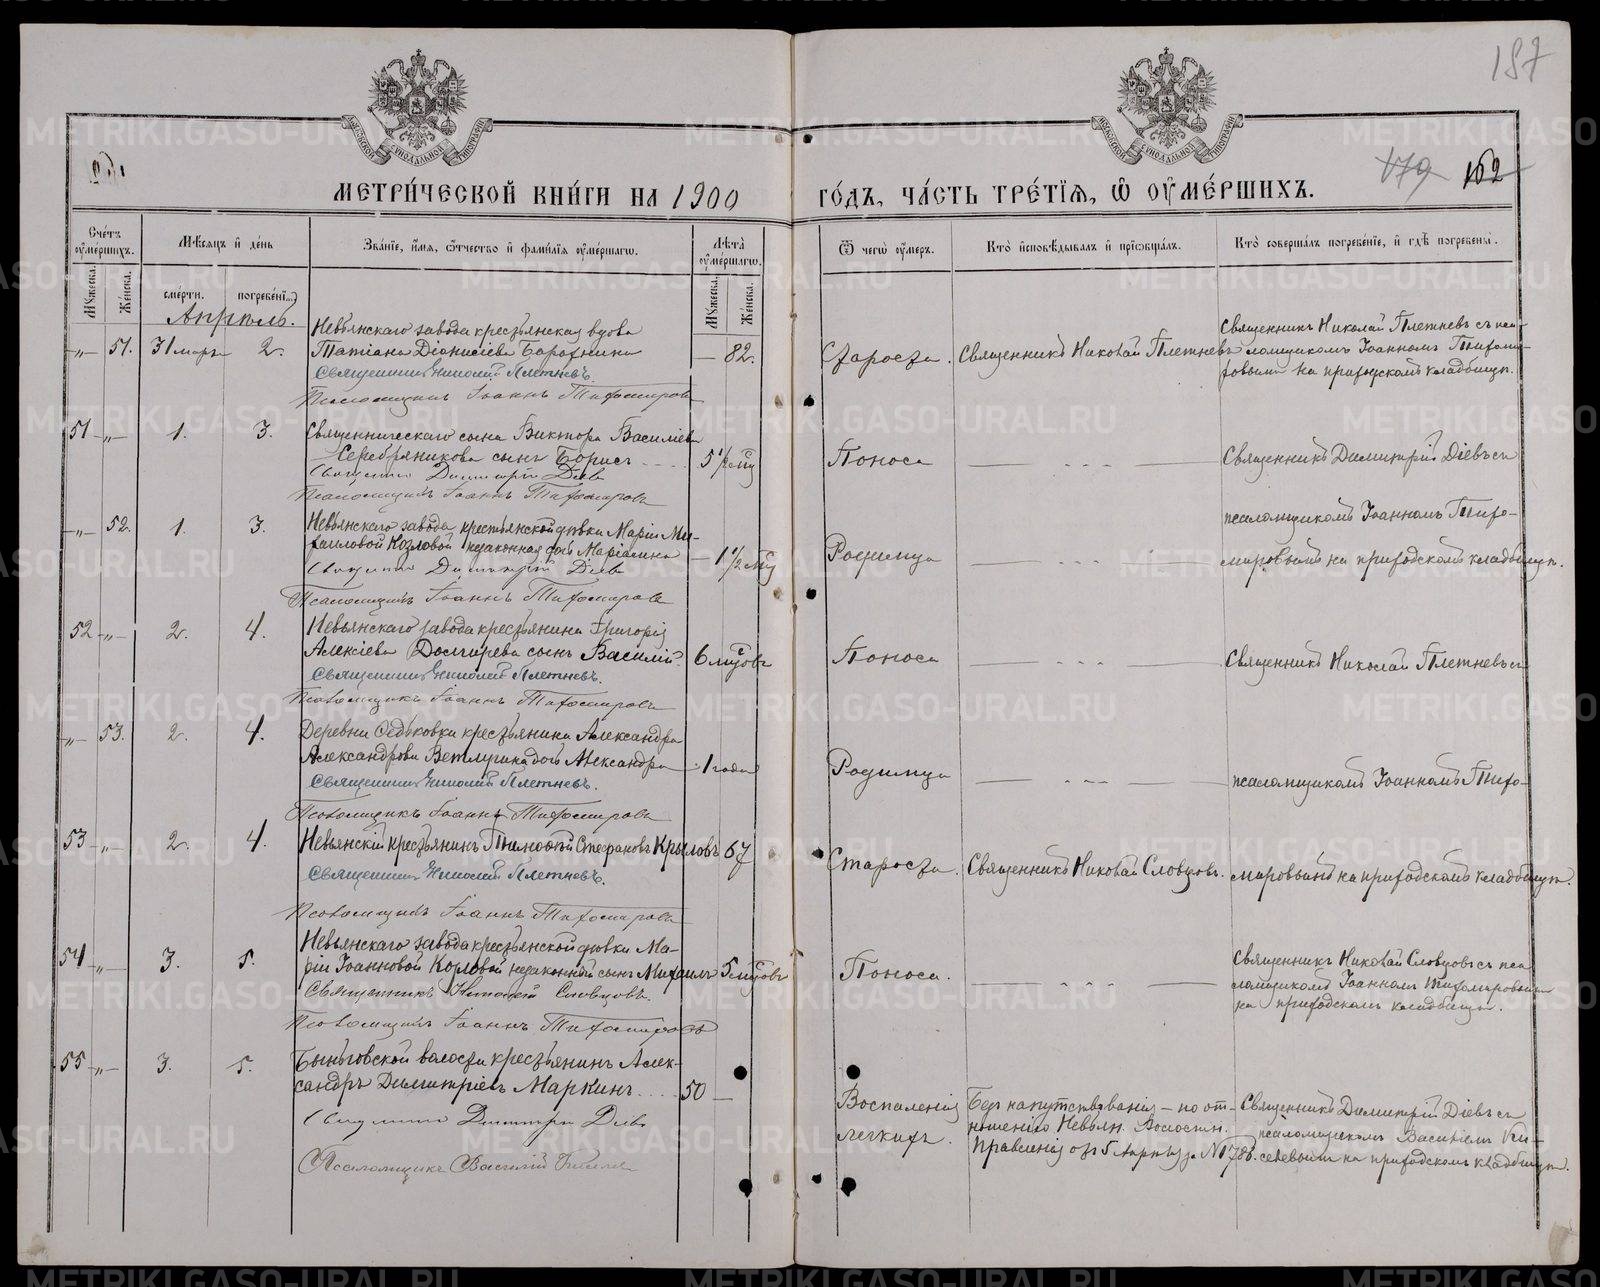 187
179 162
МЕТРИ́ЧЕСКОЙ КНИ́ГИ НА 1900 ГО́ДЪ, ЧА́СТЬ ТРЕ́ТІѦ, Ѡ҆ ОУ҆МЕ́РШИХЪ.
Сче́тъ оу҆ме́ршихъ.
Мѣ́сѧцъ и҆ де́нь
Зва́нїе, и҆́мѧ, ѻ҆́тчество и҆ фами́лїѧ оу҆ме́ршагѡ.
Лѣ́та оу҆ме́ршагѡ.
Ѿ чегѡ̀ оу҆́меръ.
Кто̀ и҆сповѣ́дывалъ и҆ прїѡбща́лъ.
Кто̀ соверша́лъ погребе́нїе, и҆ гдѣ̀ погребены̀.
Мꙋ́жеска. Же́нска. сме́рти. погребе́нї Мꙋ́жеска. Же́нска.
Апрѣль.
-„- 51. 31 мар 2. Невьянскаго завода крестьянская вдова
Татіана Діонисіева — 82.
Священникъ Николай Плетневъ.
Псаломщикъ Іоаннъ Тихомировъ
Старость. Священникъ Николай Плетневъ
Священникъ Николай Плетневъ съ пса-
ломщикомъ Іоанномъ Тихоми-
ровымъ на приходскомъ кладбищѣ.
51 -„- 1. 3. Священническаго сына Виктора Василіева
Серебряникова сынъ Борисъ
Священникъ Димитрій Діевъ
Псаломщикъ Іоаннъ Тихомировъ
Поноса
Священникъ Димитрій Діевъ съ
-„- 52. 1. 3. Невьянскаго завода крестьянской дѣвки Маріи Ми-
хаиловой Козловой незаконная дочь
Священникъ Димитрій Діевъ
Псаломщикъ Іоаннъ Тихомировъ
Родимца
псаломщикомъ Іоанномъ Тихо-
мировымъ на приходскомъ кладбищѣ.
52 -„- 2. 4. Невьянскаго завода крестьянина Григорія
Алексіева сынъ Василій. 6 мѣсяцовъ
Священникъ Николай Плетневъ.
Псаломщикъ Іоаннъ Тихомировъ
Поноса
Священникъ Николай Плетневъ съ
-„- 53. 2. 4. Деревни крестьянина Александра
Александрова Ветлугина дочь Александра — 1 года
Священникъ Николай Плетневъ.
Псаломщикъ Іоаннъ Тихомировъ
Родимца
псаломщикомъ Іоанномъ Тихо-
53 -„- 2. 4. Невьянскій крестьянинъ Тимофей Стефановъ Крыловъ 67
Священникъ Николай Плетневъ.
Псаломщикъ Іоаннъ Тихомировъ
Старость. Священникъ Николай Словцовъ.
мировымъ на приходскомъ кладбищѣ.
54 -„- 3. 5. Невьянскаго завода крестьянской дѣвки Ма-
ріи Іоанновой Козловой незаконный сынъ Михаилъ 5 мѣсяцовъ
Священникъ Николай Словцовъ.
Псаломщикъ Іоаннъ Тихомировъ
Поноса.
Священникъ Николай Словцовъ съ пса
ломщикомъ Іоанномъ Тихомировымъ
на приходскомъ кладбищѣ.
55 -„- 3. 5. Быньговской волости крестьянинъ Алек-
сандръ Димитріевъ Маркинъ 50 —
Священникъ Димитрій Діевъ
Псаломщикъ Василій
Воспаленія
легкихъ.
Безъ напутствованія — по от-
ношенію Невьян. Волостн.
Правленія отъ 5 Апрѣля за № 1786.
Священникъ Димитрій Діевъ съ
псаломщикомъ Василіемъ Ки-
селевымъ на приходскомъ кладбищѣ.
METRIKI.GASO-URAL.RU